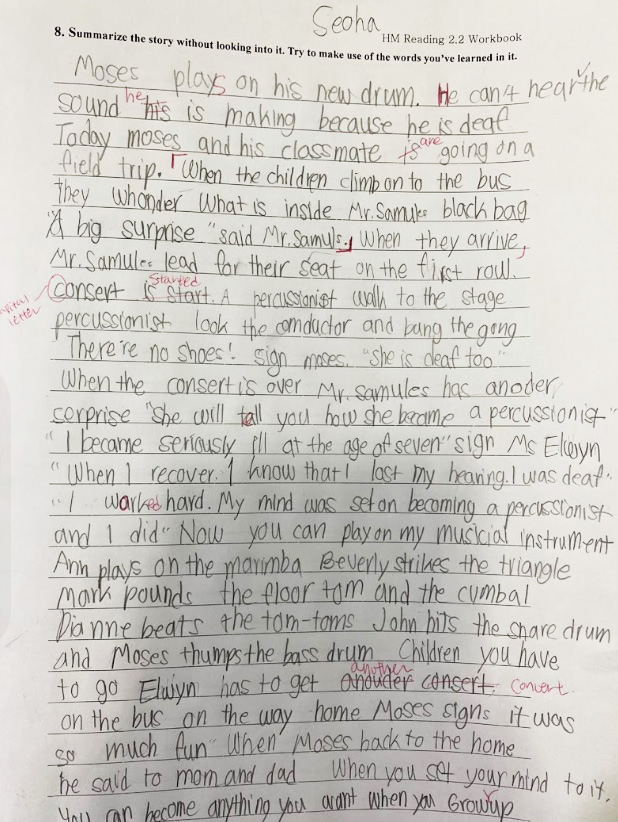 Seoha
HM Reading 2.2 Workbook
8. Summarize the story without looking into it. Try to make use of the words you've learned in it.
Moses plays on his new drum. He can't hear the
sound he his is making because he is deaf
Today moses and his classmate is are going on a
field trip. When the children climb on to the bus
they whonder What is inside Mr. Samules black bag
"A big surprise" said Mr. Samuls. When they arrive,
Mr. Samules lead for their seat on the first row.
capital letter
Consert is start. Started A percussionist walk to the stage
percusstonist look the comductor and bang the gong
"There're no shoes! sign moses. "she is deaf too"
When the consert is over Mr. samules has anoder
serprise "she will tell you how she became a percussionist"
"I became seriously ill at the age of seven" sign Ms Elwyn
"When I recover. I know that I lost my hearing. I was deaf"
"I warked hard. My mind was set on becoming a percussionist
and I did" Now you can play on my musicial instrument
Ann plays on the marimba Beverly strikes the triangle
Mark pounds the floor tom and the cymbal
Dianne beats the tom-toms John hits the snare drum
and Moses thumps the bass drum Children you have
to go Elwyn has to get anouder another consert. Concert.
on the bus on the way home Moses signs it was
so much fun" When Moses back to the home
he said to mom and dad When you set your mind to it.
You can become anything you want when you Grow up